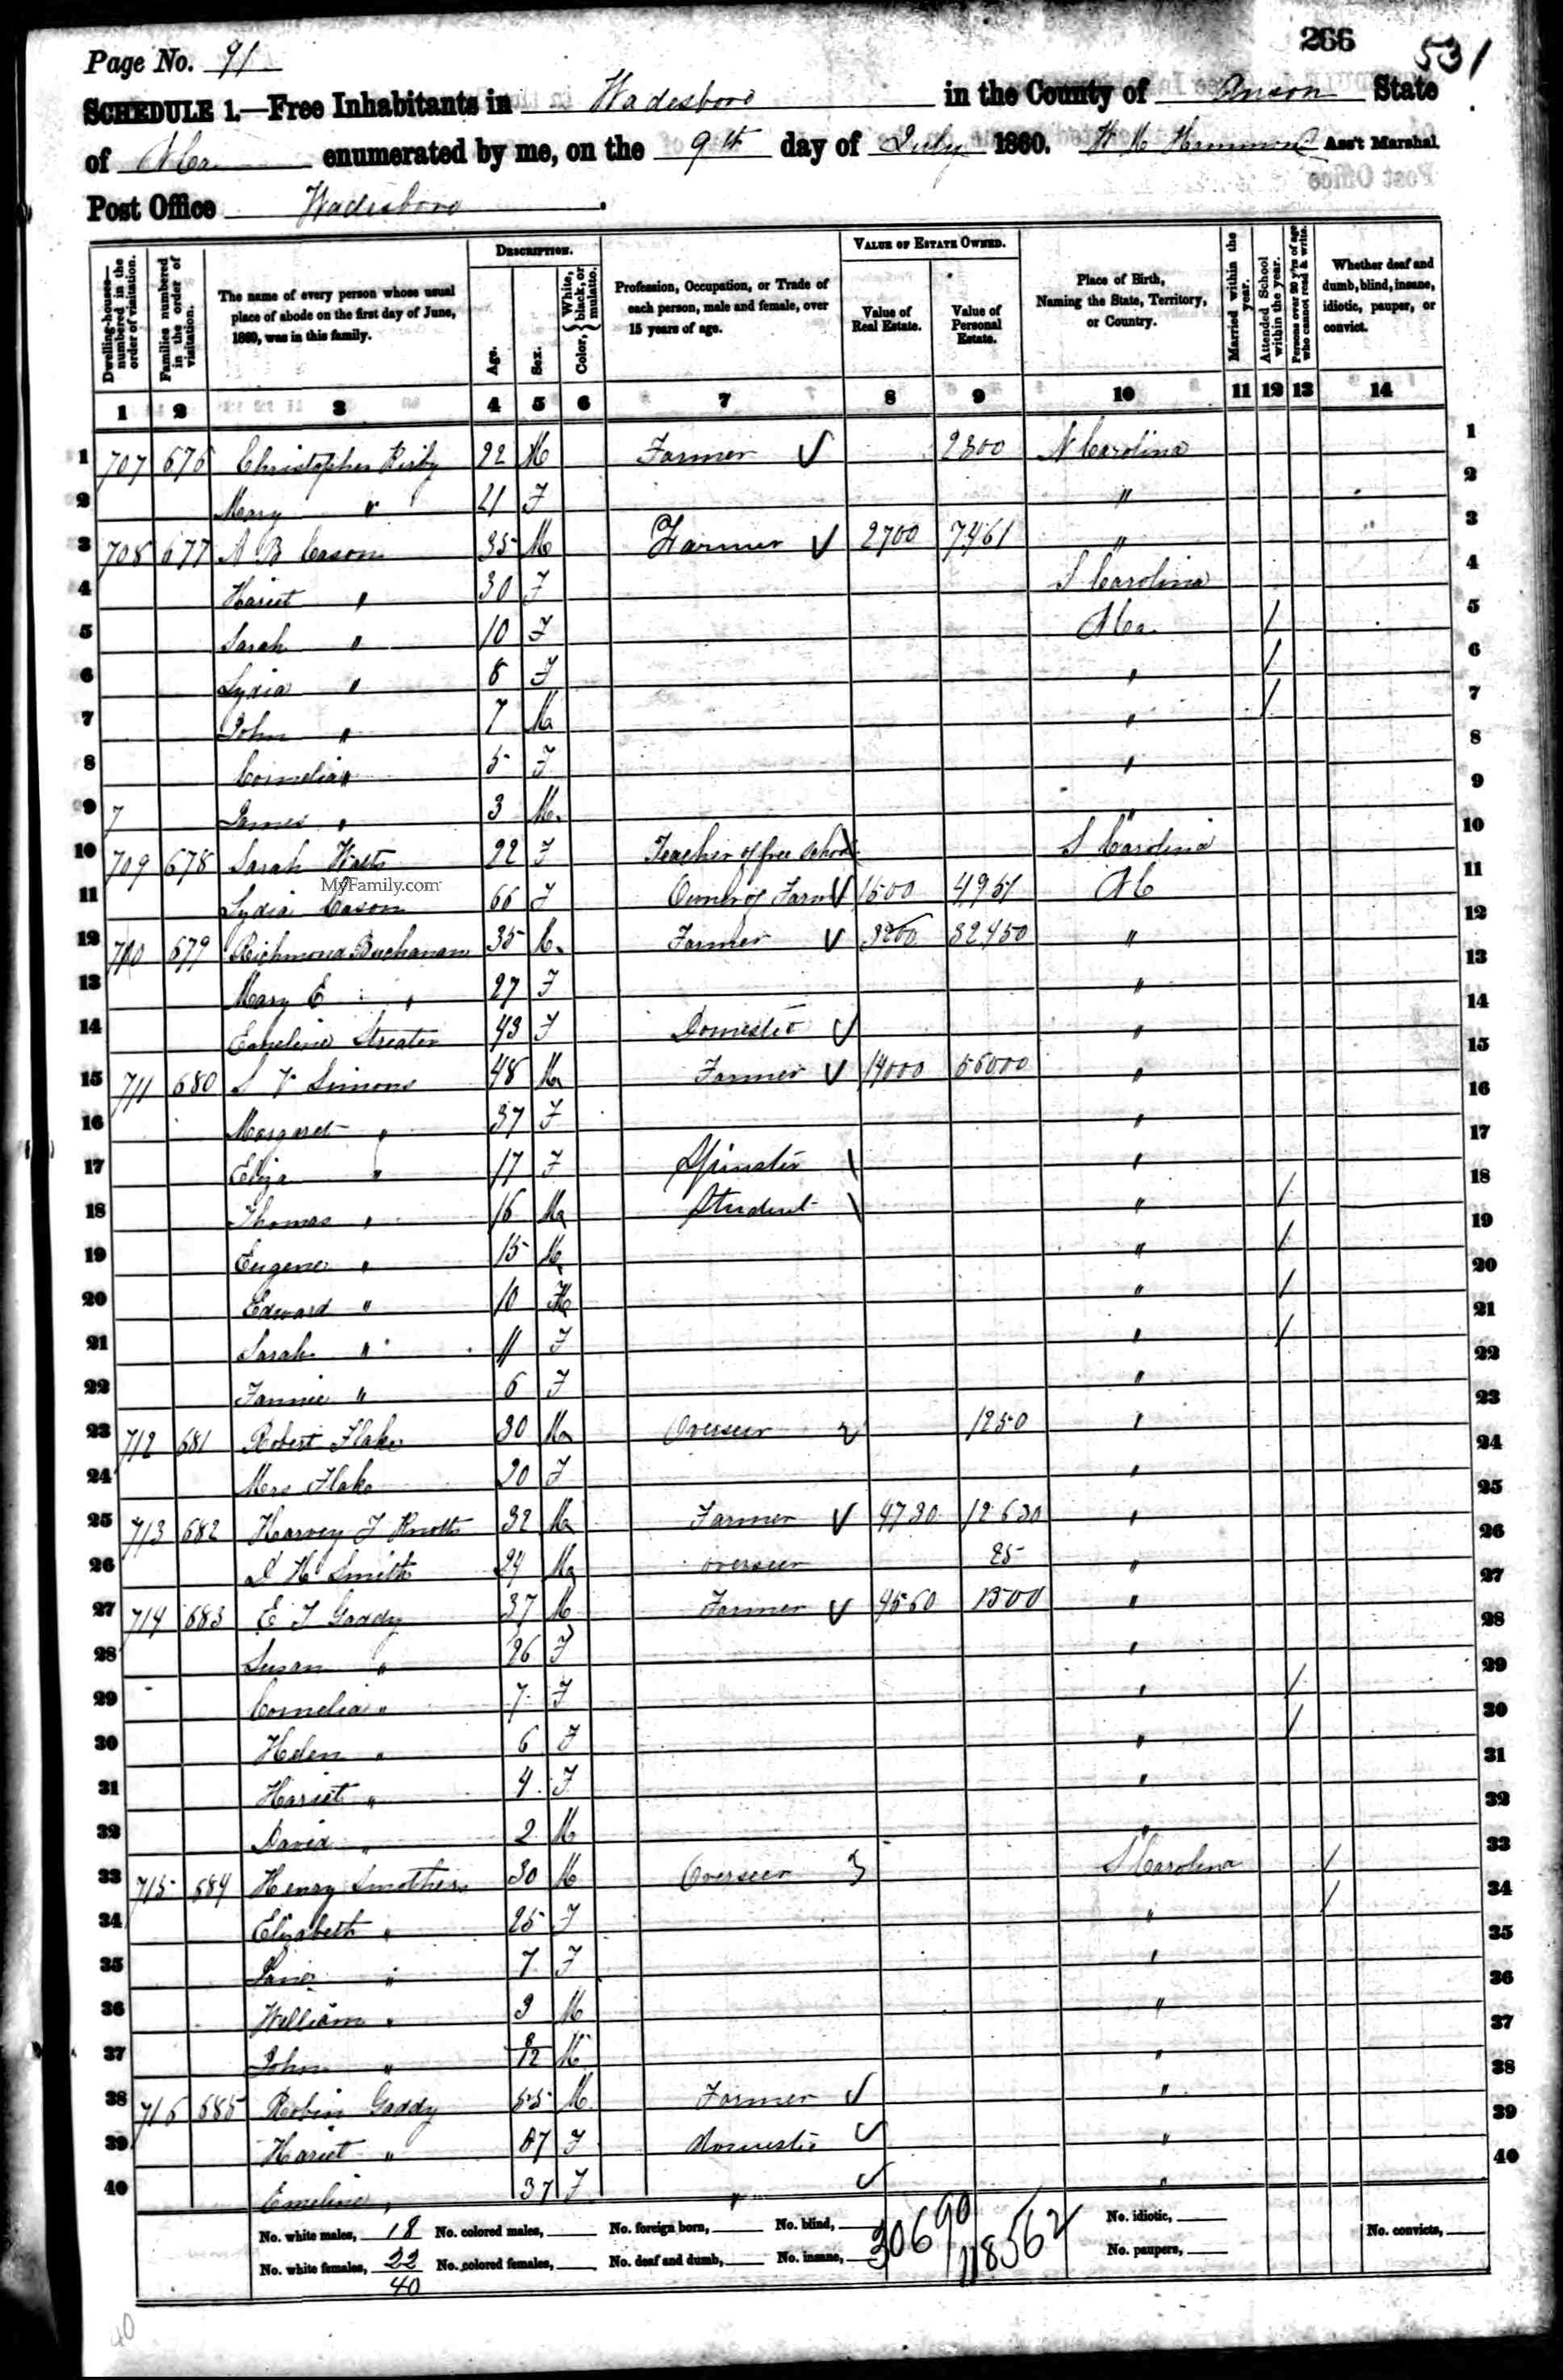 266
531
Page No. 91
SCHEDULE 1.—Free Inhabitants in Wadesboro in the County of Anson State
of N Ca. enumerated by me, on the 9th day of July 1860. Ass't Marshal.
Post Office Wadesboro.
Dwelling-houses—numbered in the order of visitation.
Families numbered in the order of visitation.
The name of every person whose usual place of abode on the first day of June, 1860, was in this family.
DESCRIPTION.
Age.
Sex.
Color, { White, black, or mulatto.
Profession, Occupation, or Trade of each person, male and female, over 15 years of age.
VALUE OF ESTATE OWNED.
Value of Real Estate.
Value of Personal Estate.
Place of Birth, Naming the State, Territory, or Country.
Married within the year.
Attended School within the year.
Persons over 20 y'rs of age who cannot read & write.
Whether deaf and dumb, blind, insane, idiotic, pauper, or convict.
1 2 3 4 5 6 7 8 9 10 11 12 13 14
1 707 676 Christopher 22 M Farmer 2300 N Carolina 1
2 Mary " 21 F " 2
3 708 677 A B Cason 35 M Farmer 2700 7461 " 3
4 Hariet " 30 F S Carolina 4
5 Sarah " 10 F N Ca. / 5
6 Lydia " 8 F " / 6
7 John " 7 M " / 7
8 Cornelia " 5 F " 8
9 7 James " 3 M. " 9
10 709 678 Sarah 22 F Teacher of free School S Carolina 10
MyFamily.com
11 Lydia Cason 66 F Owner of Farm 1500 4951 N C 11
12 710 679 Richmond Buchanan 35 M. Farmer 3200 32450 " 12
13 Mary E " 27 F " 13
14 Emeline Streater 43 F Domestic " 14
15 711 680 S Simons 48 M Farmer 14000 56000 " 15
16 Margaret " 37 F " 16
17 Eliza " 17 F Spinster " 17
18 Thomas " 16 M Student " / 18
19 Eugene " 15 M " / 19
20 Edward " 10 M " / 20
21 Sarah " 11 F " / 21
22 Fannie " 6 F " 22
23 712 681 Robert Flake 30 M Overseer 1250 " 23
24 Mrs Flake 20 F " 24
25 713 682 Harvey J Knotts 32 M Farmer 4730 12630 " 25
26 H Smith 24 M overseer 25 " 26
27 714 683 E J Gaddy 37 M Farmer 4560 1500 " 27
28 Susan " 26 F " 28
29 Cornelia " 7 F " / 29
30 Helen " 6 F " / 30
31 Hariet " 4 F " 31
32 David " 2 M " 32
33 715 684 Henry Smothers 30 M Overseer S Carolina / 33
34 Elizabeth " 25 F " / 34
35 Jane " 7 F " 35
36 William " 3 M " 36
37 John " 8/12 M " 37
38 716 685 Robin Gaddy 55 M Farmer " 38
39 Hariet " 57 F domestic " 39
40 Emeline " 37 F " " 40
No. white males, 18 No. colored males, No. foreign born, No. blind, 30690 118562 No. idiotic,
No. white females, 22 No. colored females, No. deaf and dumb, No. insane, No. paupers, No. convicts,
40
40